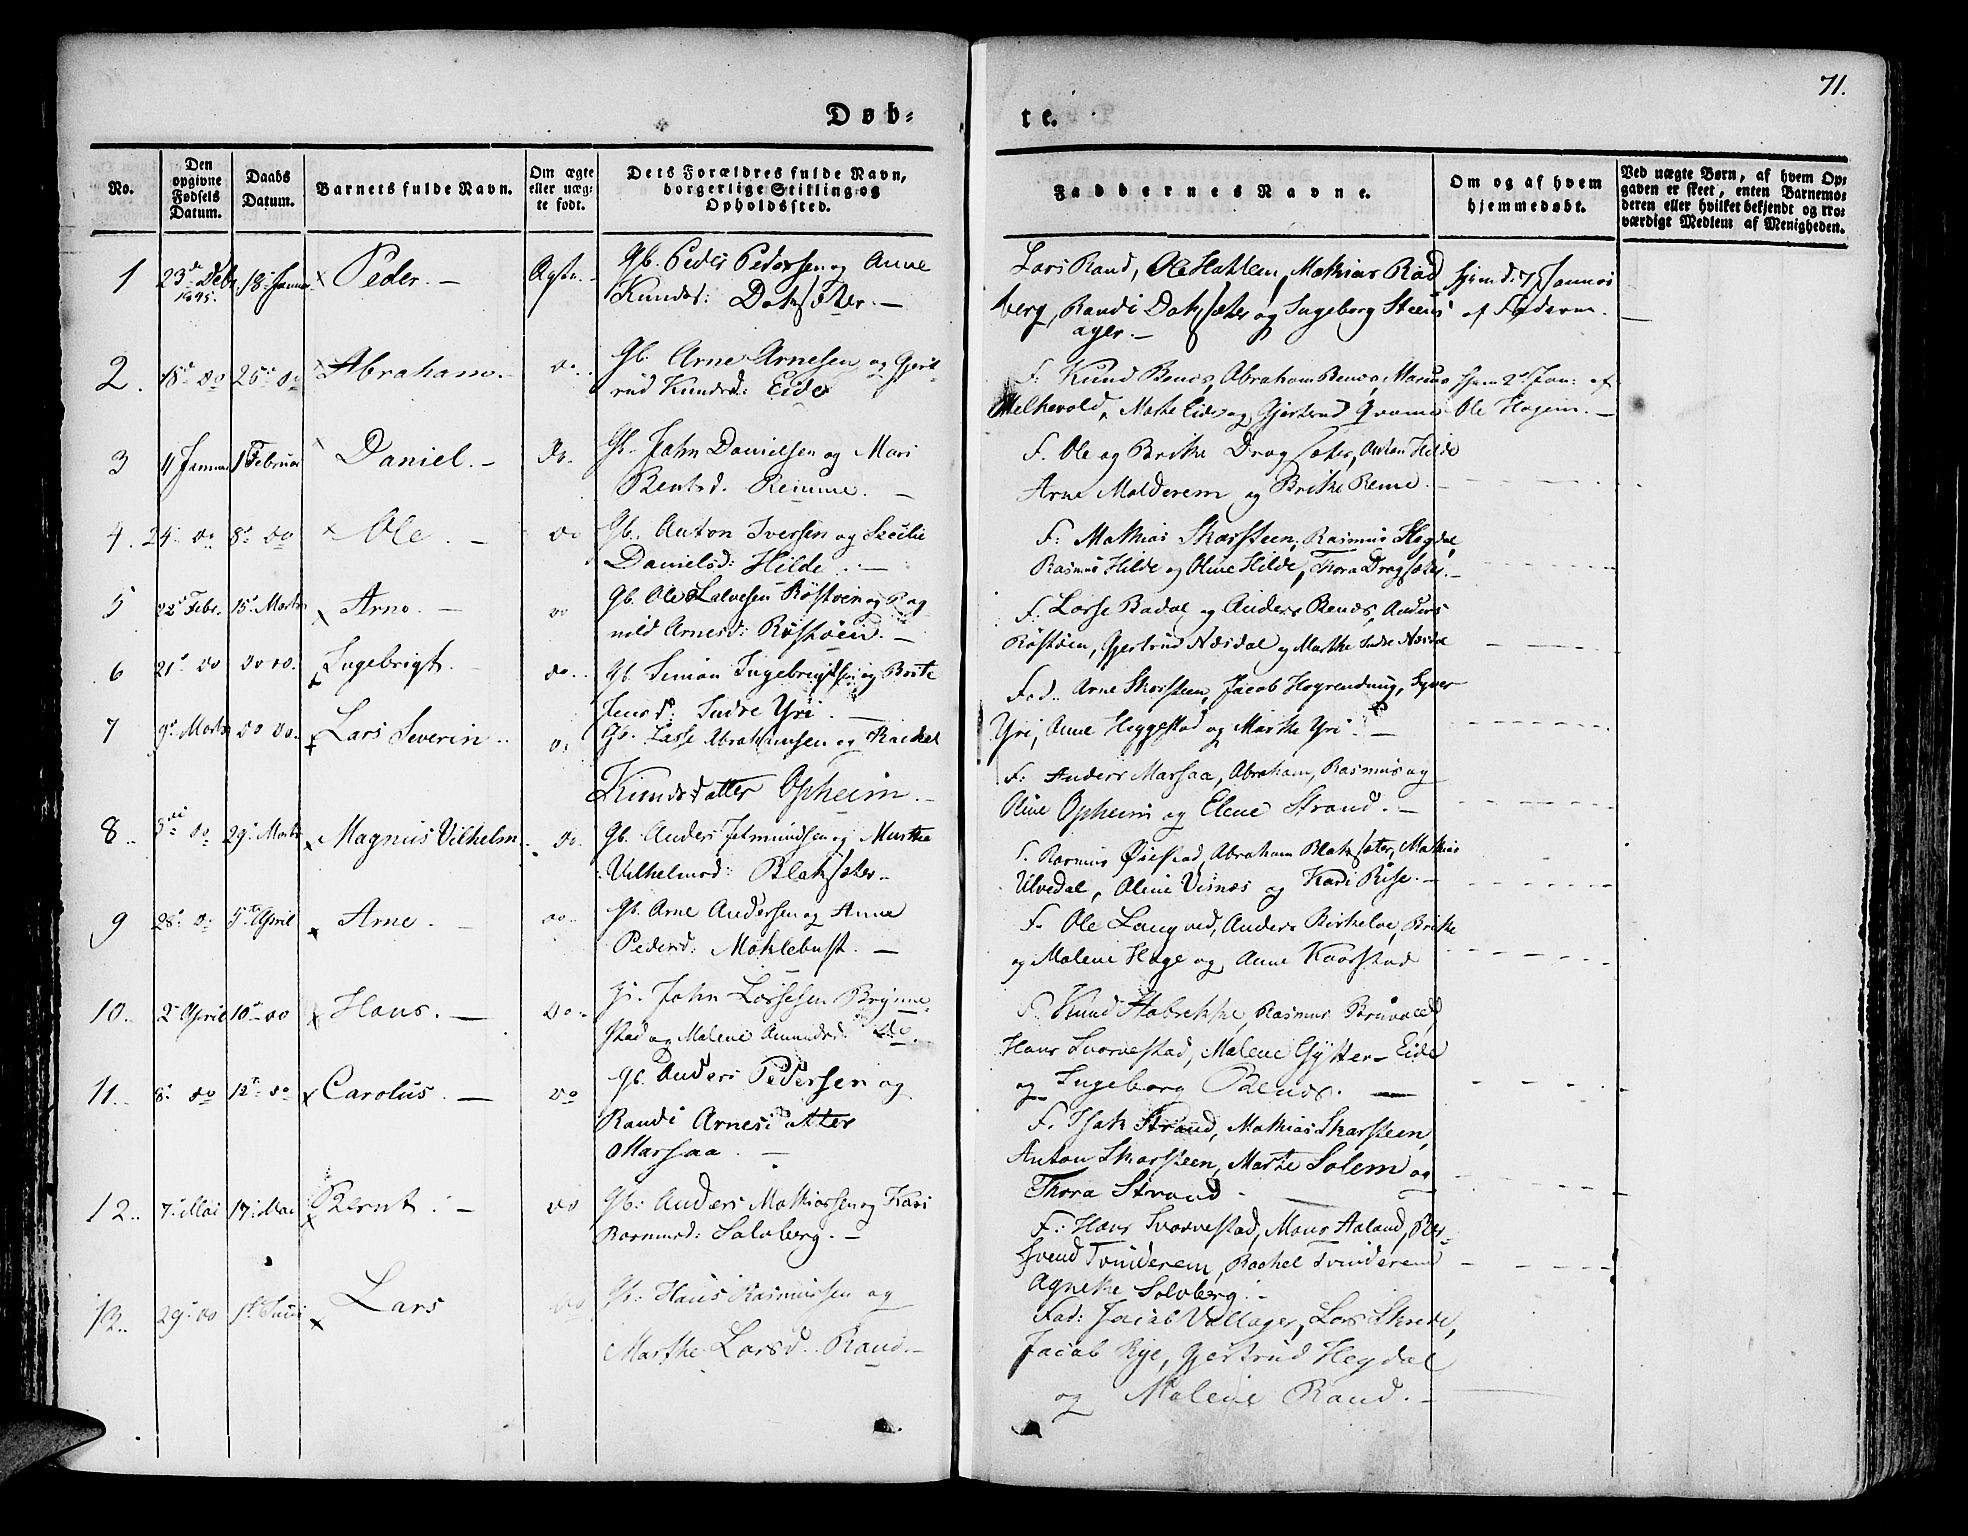 71.
Døb-
te.
No.
Den opgivne Fødsels Datum.
Daabs Datum.
Barnets fulde Navn.
Om ægte eller uæg-te født.
Dets Forældres fulde Navn, borgerlige Stilling og Opholdssted.
Faddernes Navne.
Om og af hvem hjemmedøbt.
Ved uægte Børn, af hvem Op-
gaven er skeet, enten Barnemo-
deren eller hvilket bekjendt og tro-
værdigt Medlem af Menigheden.
1 23de Debr 1845. 18 Januar Peder. - Ægte. - Gb. Peder Pedersen og Anne
Knudsd: Dok sæter. -
Lars Rand, Ole Hahlem, Mathias Rød
berg, Randi Doksæter og Ingeborg Steens
ager. -
hjemd: 7 Januar
af Faderen. -
2. 18de do 26de do Abraham. - do. Gb. Arne Arnesen og Gjert-
rud Knudsd: Eide
F: Knud Benes, Abraham Benes, Marius
Melhevold, Marte Eide og Gjertrud Qvame
hjem 2d Jan: af
Ole Hagem. -
3 11 Januar 1 Februar Daniel. - do. Gb. John Danielsen og Mari
Berntsd. Remme. -
F. Ole og Brithe Dragsæter, Anton Hilde
Arne Molderem og Brithe Reme. -
4. 24 do 8de do Ole. - do Gb. Anton Iversen og Secilie
Danielsd: Hilde. -
F: Mathias Skarsteen, Rasmus Hegdal,
Rasmus Hilde og Oline Hilde, Thora Dragsæter. -
5 22d Febr. 15d Marts Arne. - do Gb. Ole Salvesen Røstøen og Rag
nild Arnesd: Røstøen. -
F: Lasse Bødal og Anders Benes, Anders
Røstøen, Gjertrud Næsdal og Marthe Indre Næsdal
6 21d do do do. Ingebrigt. - do. Gb. Simon Ingebrigtsen og Brite
Jensd: Indre Yri. -
Fad.. Arne Skarsteen, Jacob Hogrending, Syver
Yri, Anne Heggestad og Marthe Yri. -
7 9d Marts do do. Lars Severin. do Gb. Lasse Abrahamsen og Rachel
Knudsdatter Opheim. -
F: Anders Marsaa, Abraham, Rasmus og
Oline Opheim og Elene Strand. -
8.. 3die do 29d Marts Magnus Vilhelm. do. Gb. Anders Jetmundsen og Marthe
Vilhelmsd: Blaksæter -
F. Rasmus Øiestad, Abraham Blaksæter, Mathias
Ulvedal, Oline Visnæs og Kari Rise. -
9 28d do 5te April Arne. - do.. Gb. Arne Andersen og Anne
Pedersd: Mohlebust. -
F. Ole Langved, Anders Birkeloe, Brithe
og Malene Hage og Anne Kaarstad
10.. 2d April 10d do Hans. - do.. Gb. John Lassesen Brynne-
stad og Malene Amundsd. do.
F. Knud Aabrekke, Rasmus Bruvold,
Hans Svarvestad, Malene Gytter - Eide
og Ingeborg Benes. -
11.. 8d do 12te do Carolus. - do Gb. Anders Pedersen og
Randi Arnesdatter
Marsaa. -
F. Isak Strand, Mathias Skarsteen,
Anton Skarsteen, Marthe Solem og
Thora Strand -
12.. 7d Mai 17d Mai Bernt. - do Gb: Anders Mathiassen og Kari
Rasmusd: Solvberg. -
F.: Hans Svarvestad, Mons Aaland, Per-
Svend Tvinderem, Rachel Tvinderem
Agnethe Solvberg. -
13.. 29d do 1ste Juni Lars do Gb: Hans Rasmussen og
Marthe Larsd.. Rand. -
Fad: Jacob Vallager, Lars Skrede,
Jacob Rye, Gjertrud Hegdal
og Malene Rand. -